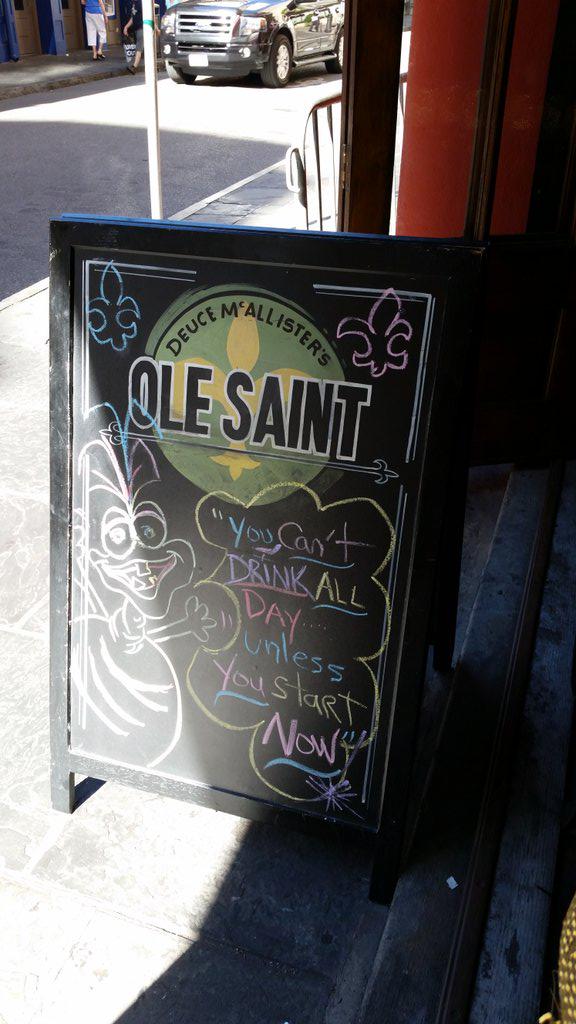 DEUCE McALLISTER'S
OLE SAINT
"You Can't
DRINK ALL
DAY....
unless
You start
Now"